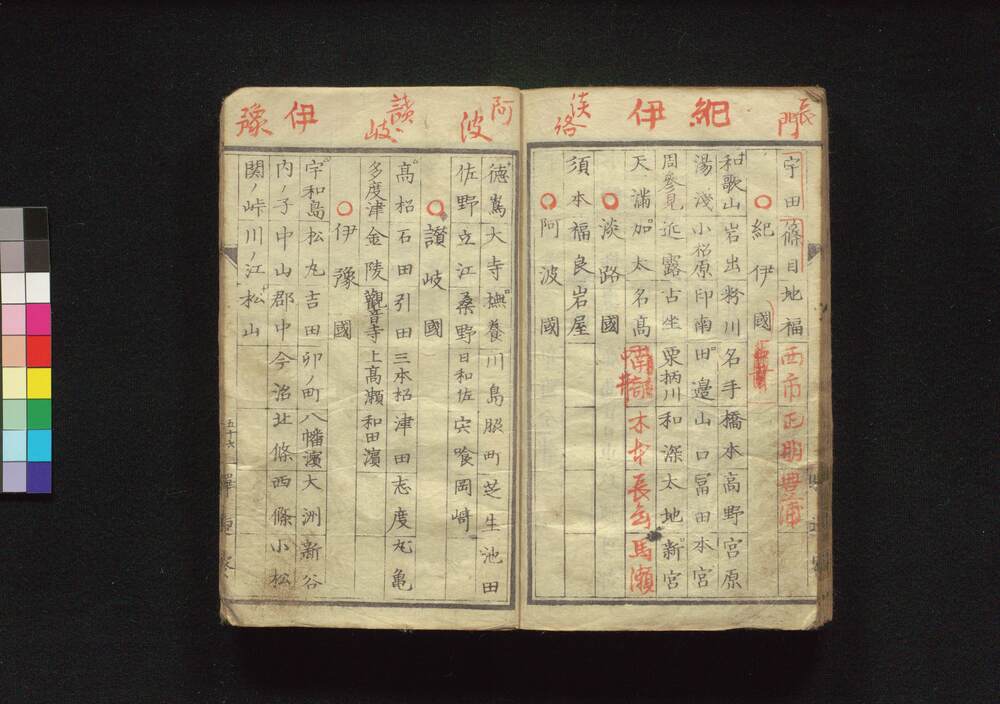 長門
宇田篠目地福西市正明豊浦
紀伊
○紀伊國
和歌山岩出粉川名手橋本高野宮原
湯淺小松原印南田邊山口冨田本宮
周參見近露古座栗柄川和深太地新宮
天滿加太名高木本長島馬瀬
淡路
○淡路國
須本福良岩屋
阿波
○阿波國
德島大寺撫養川島脇町芝生池田
佐野立江桑野日和佐宍喰岡﨑
讃岐
○讃岐國
髙松石田引田三本松津田志度丸亀
多度津金陵觀音寺上髙瀬和田濱
伊豫
○伊豫國
宇和島松丸吉田卯ノ町八幡濱大洲新谷
内ノ子中山郡中今治北條西條小松
関ノ峠川ノ江松山
五十六